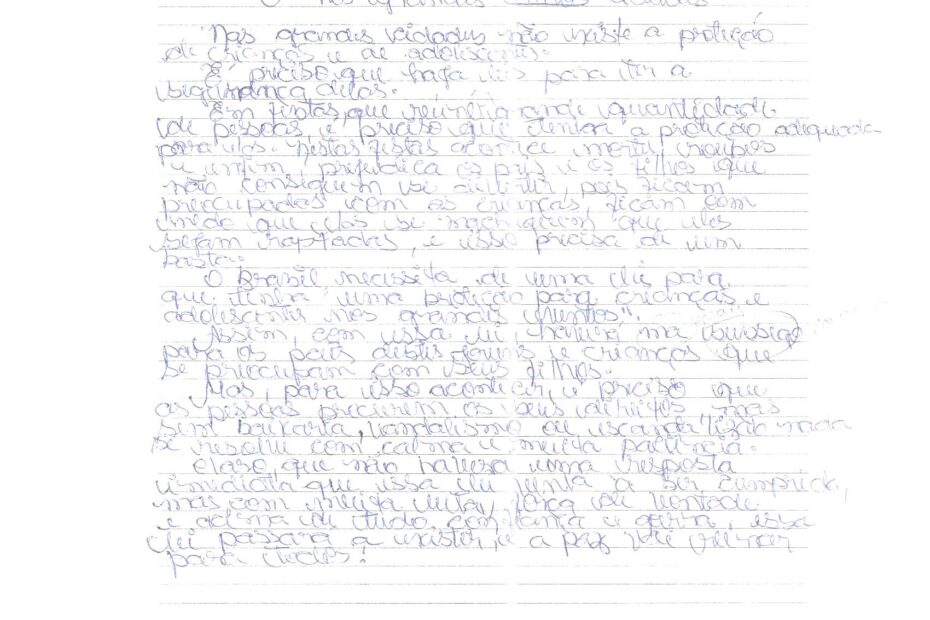 nos grandes
"Nas grandes cidades não existe a proteção
de crianças e de adolescentes.
É preciso que haja leis para ter a
segurança delas.
Em festas que reúne grande quantidade
de pessoas, é preciso que tenha a proteção adequada
para elas. Nestas festas acontece morte, roubos
e enfim, prejudica os pais e os filhos que
não conseguem se divertir, pois ficam
preocupadas com as crianças, ficam com
medo que elas se machuquem, que eles
sejam raptadas, e isso precisa de um
basta.
O Brasil necessita de uma lei para
que tenha "uma proteção para crianças e
adolescentes nos grandes eventos".
Assim, com essa lei, haverá ma
para os pais destes jovens e crianças que
se preocupam com seus filhos.
Mas, para isso acontecer, é preciso que
as pessoas procurem os seus direitos, mas
sem baixaria, vandalismo ou nada
se resolve com calma e muita paciência.
Claro, que não haverá uma resposta
imediata que essa lei venha a ser cumprida,
mas com muita luta, força de vontade
e acima de tudo, confiança e garra, essa
lei passará a existir, e a paz vai reinar
para todos!